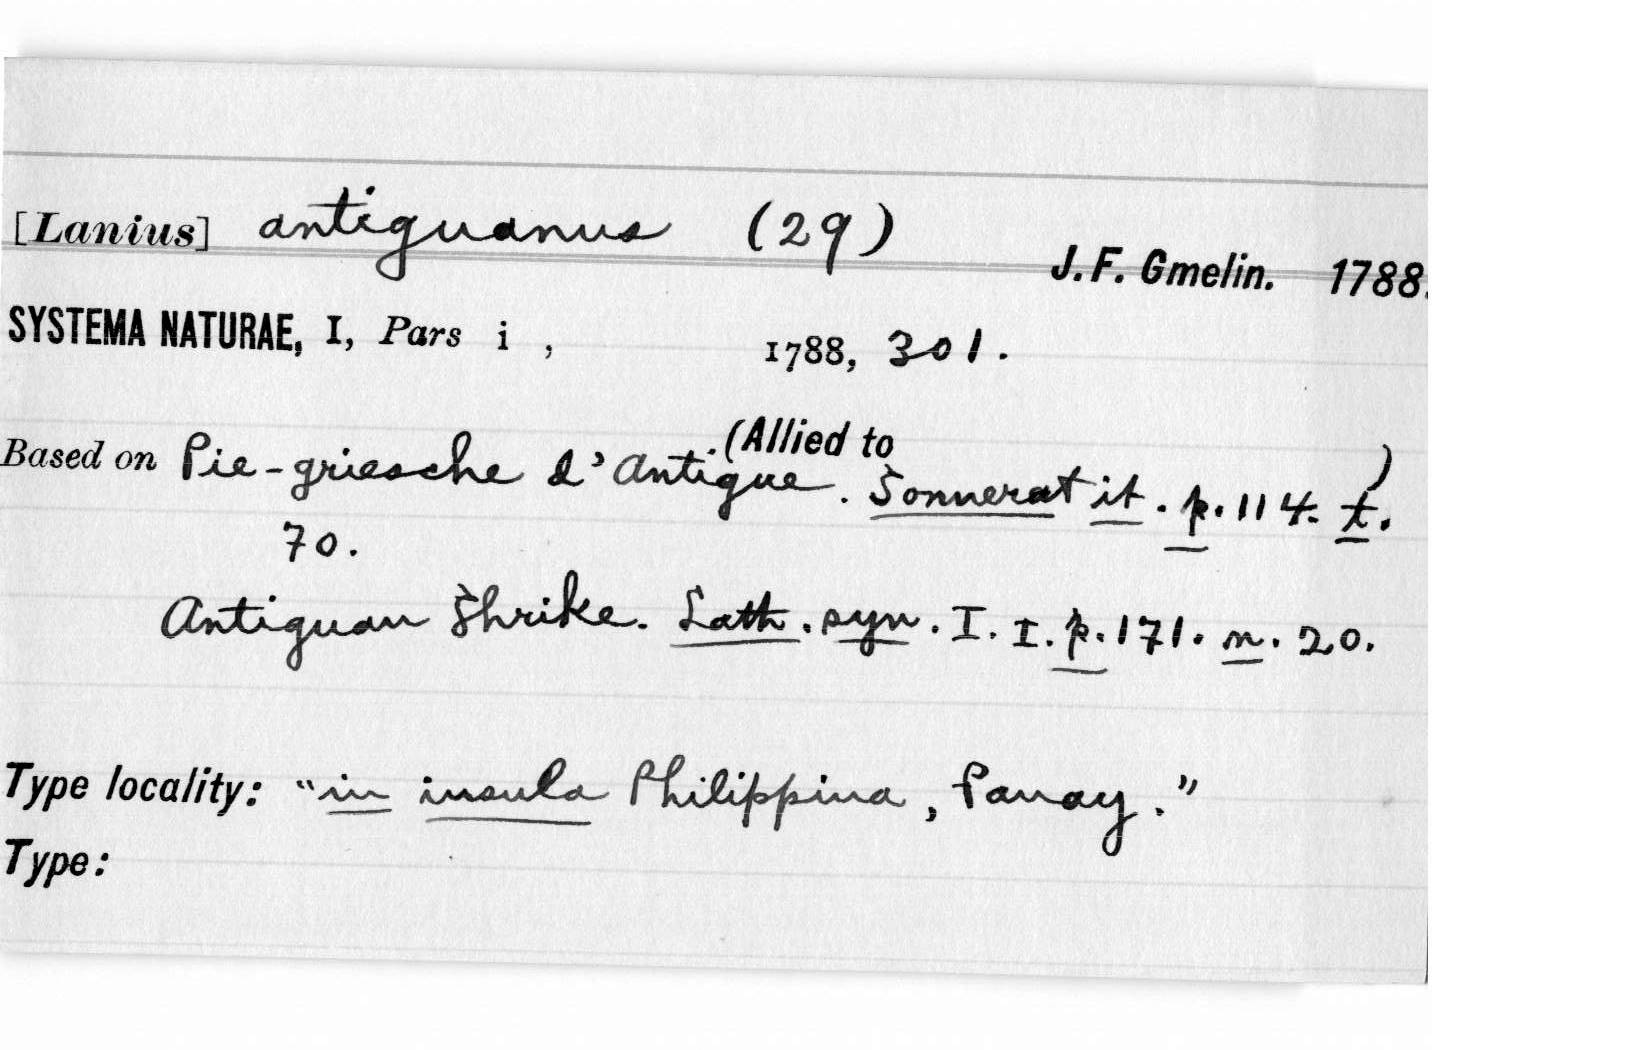 [Lanius] antiguanus (29)
J. F. Gmelin. 1788.
SYSTEMA NATURAE, I, Pars i, 1788, 301.
(Allied to )
Based on Pie-griesche d'Antigue. Sonnerat it. p. 114. t.
70.
Antiguan Shrike. Lath. syn. I. I. p. 171. n. 20.
Type locality: "in insula Philippina, Panay."
Type: